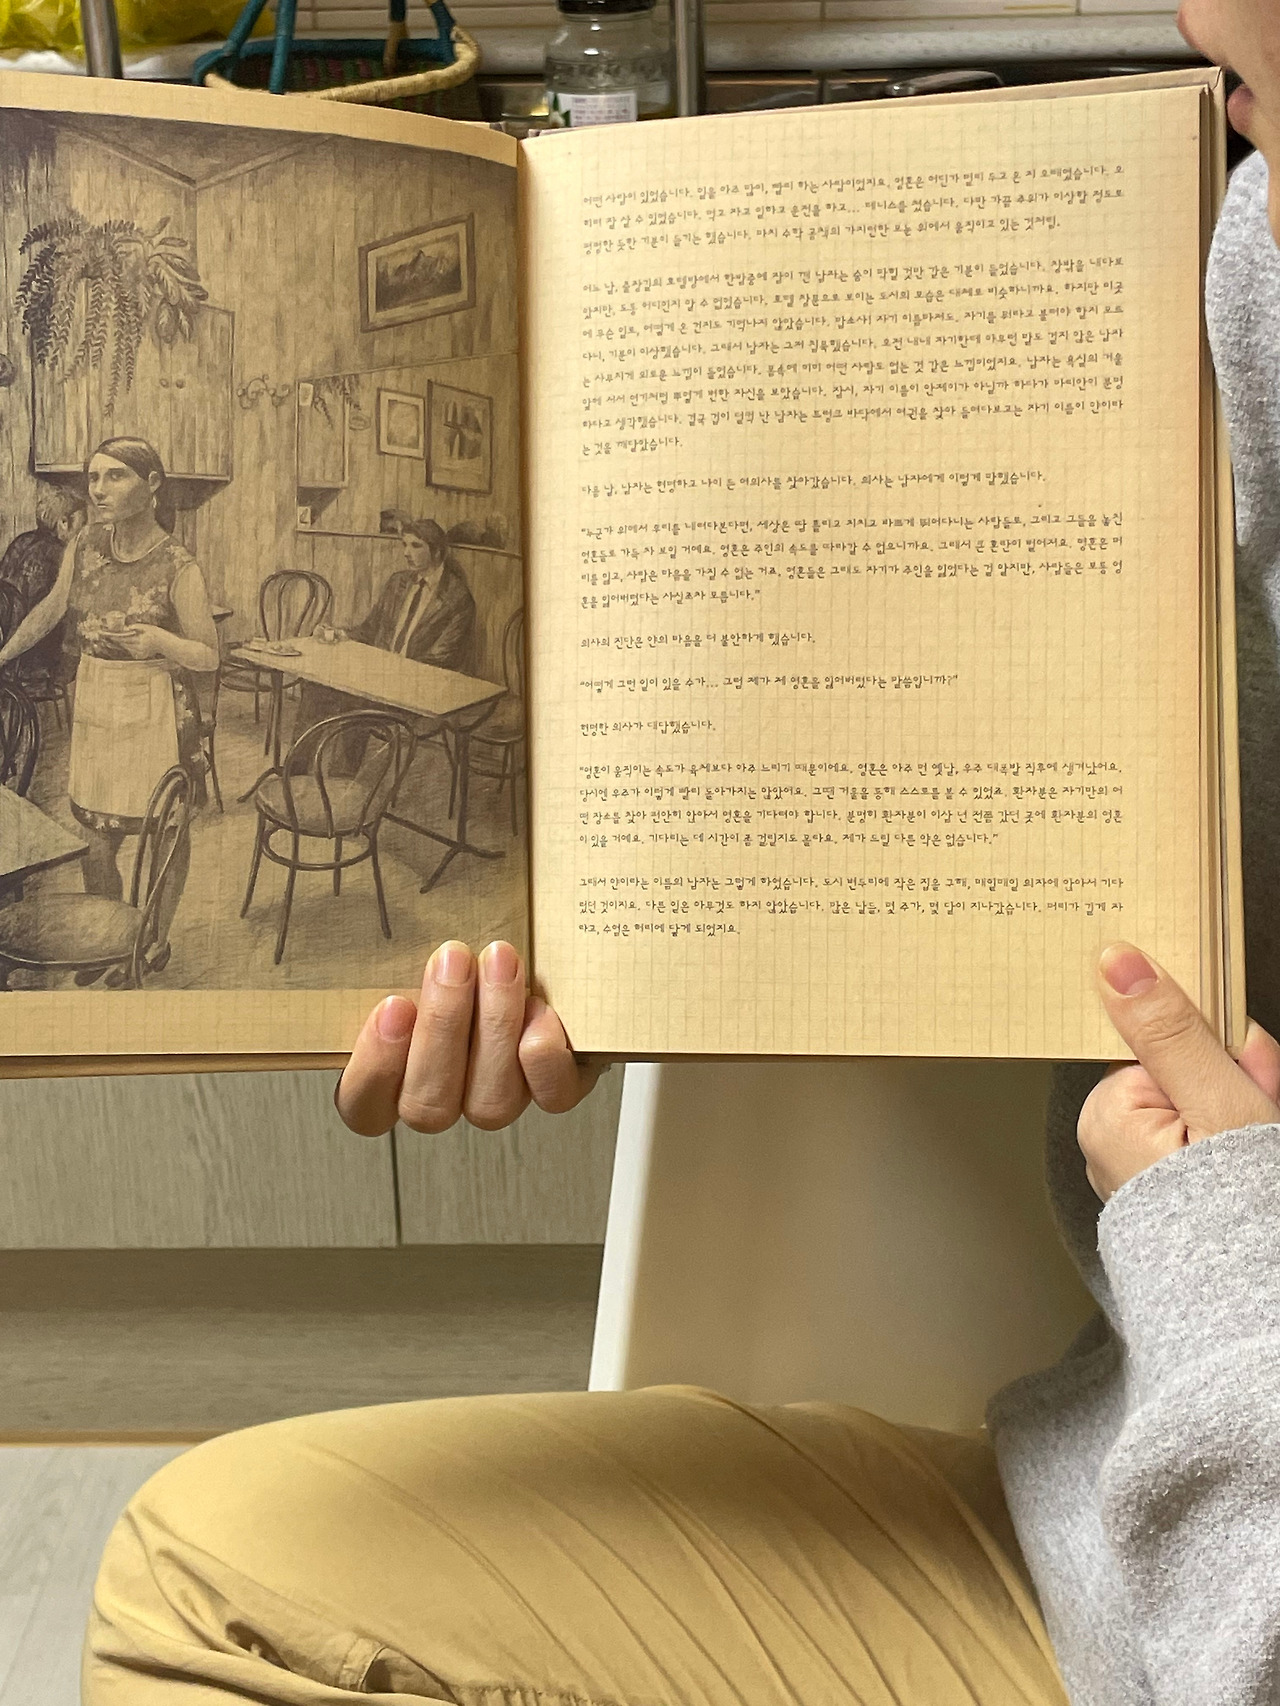 어떤 사람이 있었습니다. 일을 아주 많이, 빨리 하는 사람이었지요. 영혼은 어딘가 멀리 두고 온 지 오래였습니다. 오
히려 잘 살 수 있었습니다. 먹고 자고 일하고 운전을 하고... 테니스를 쳤습니다. 다만 가끔 주위가 이상할 정도로
평평한 듯한 기분이 들기는 했습니다. 마치 수학 공책의 가지런한 모눈 위에서 움직이고 있는 것처럼.
어느 날, 출장길의 호텔방에서 한밤중에 잠이 깬 남자는 숨이 막힐 것만 같은 기분이 들었습니다. 창밖을 내다보
았지만, 도통 어디인지 알 수 없었습니다. 호텔 창문으로 보이는 도시의 모습은 대체로 비슷하니까요. 하지만 이곳
에 무슨 일로, 어떻게 온 건지도 기억나지 않았습니다. 맙소사! 자기 이름마저도. 자기를 뭐라고 불러야 할지 모르
다니, 기분이 이상했습니다. 그래서 남자는 그저 침묵했습니다. 오전 내내 자기한테 아무런 말도 걸지 않은 남자
는 사무치게 외로운 느낌이 들었습니다. 몸속에 이미 어떤 사람도 없는 것 같은 느낌이었지요. 남자는 욕실의 거울
앞에 서서 연기처럼 뿌옇게 변한 자신을 보았습니다. 잠시, 자기 이름이 안제이가 아닐까 하다가 마리안이 분명
하다고 생각했습니다. 결국 겁이 덜컥 난 남자는 트렁크 바닥에서 여권을 찾아 들여다보고는 자기 이름이 얀이라
는 것을 깨달았습니다.
다음 날, 남자는 현명하고 나이 든 여의사를 찾아갔습니다. 의사는 남자에게 이렇게 말했습니다.
"누군가 위에서 우리를 내려다본다면, 세상은 땀 흘리고 지치고 바쁘게 뛰어다니는 사람들로, 그리고 그들을 놓친
영혼들로 가득 차 보일 거예요. 영혼은 주인의 속도를 따라갈 수 없으니까요. 그래서 큰 혼란이 벌어져요. 영혼은 머
리를 잃고, 사람은 마음을 가질 수 없는 거죠. 영혼들은 그래도 자기가 주인을 잃었다는 걸 알지만, 사람들은 보통 영
혼을 잃어버렸다는 사실조차 모릅니다."
의사의 진단은 얀의 마음을 더 불안하게 했습니다.
"어떻게 그런 일이 있을 수가... 그럼 제가 제 영혼을 잃어버렸다는 말씀입니까?"
현명한 의사가 대답했습니다.
"영혼이 움직이는 속도가 육체보다 아주 느리기 때문이에요. 영혼은 아주 먼 옛날, 우주 대폭발 직후에 생겨났어요.
당시엔 우주가 이렇게 빨리 돌아가지는 않았어요. 그땐 거울을 통해 스스로를 볼 수 있었죠. 환자분은 자기만의 어
떤 장소를 찾아 편안히 앉아서 영혼을 기다려야 합니다. 분명히 환자분이 이삼 년 전쯤 갔던 곳에 환자분의 영혼
이 있을 거예요. 기다리는 데 시간이 좀 걸릴지도 몰라요. 제가 드릴 다른 약은 없습니다."
그래서 얀이라는 이름의 남자는 그렇게 하였습니다. 도시 변두리에 작은 집을 구해, 매일매일 의자에 앉아서 기다
렸던 것이지요. 다른 일은 아무것도 하지 않았습니다. 많은 날들, 몇 주가, 몇 달이 지나갔습니다. 머리가 길게 자
라고, 수염은 허리에 닿게 되었지요.